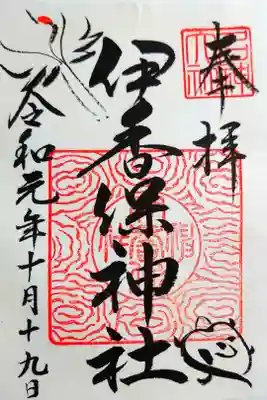 奉拝
伊香保神社
令和元年十月十九日